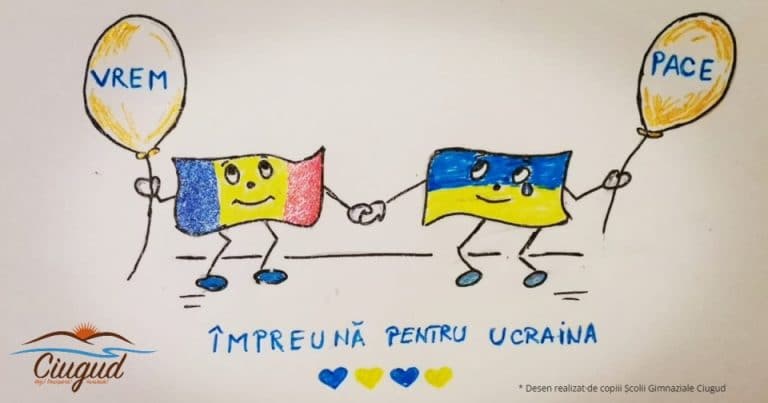 VREM
PACE
ÎMPREUNĂ PENTRU UCRAINA
Ciugud
* Desen realizat de copiii Școlii Gimnaziale Ciugud